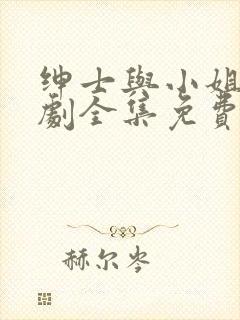 绅士與小姐
劇全集免費
赫尔岑